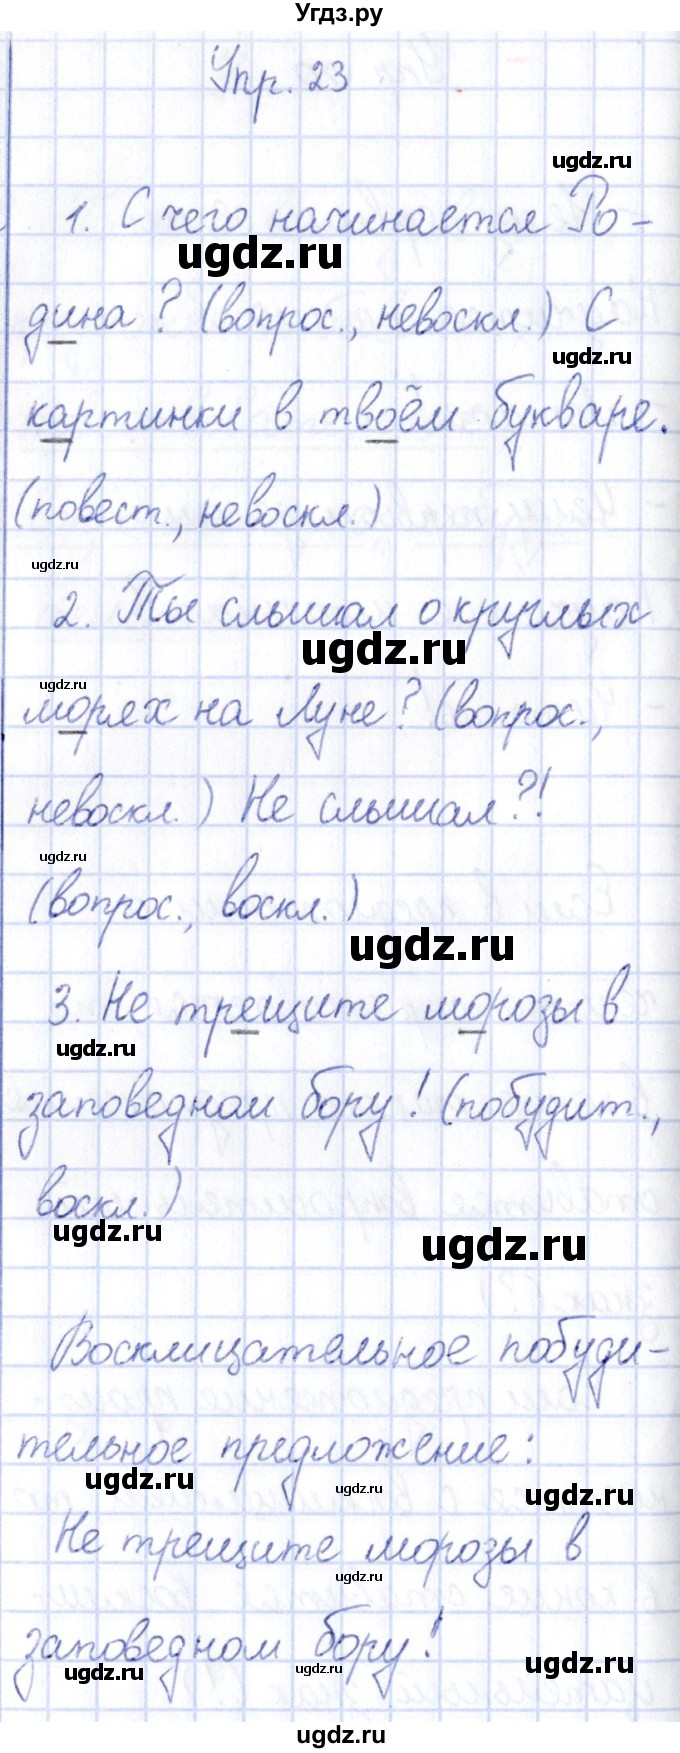 Угдз.ру
Упр. 23
ugdz.ru
1. С чего начинается Ро-
ugdz.ru
дина? (вопрос., невоскл.) С
ugdz.ru
картинки в твоём букваре.
(повест., невоскл.)
ugdz.ru
2. Ты слышал о круглых
ugdz.ru
ugdz.ru
морях на Луне? (вопрос.,
невоскл.) Не слышал?!
ugdz.ru
(вопрос., воскл.)
ugdz.ru
3. Не трещите морозы в
ugdz.ru
заповедном бору! (побудит.,
воскл.)
ugdz.ru
ugdz.ru
Восклицательное побуди-
тельное предложение:
ugdz.ru
ugdz.ru
ugdz.ru
Не трещите морозы в
ugdz.ru
заповедном бору!
ugdz.ru
ugdz.ru
ugdz.ru
ugdz.ru